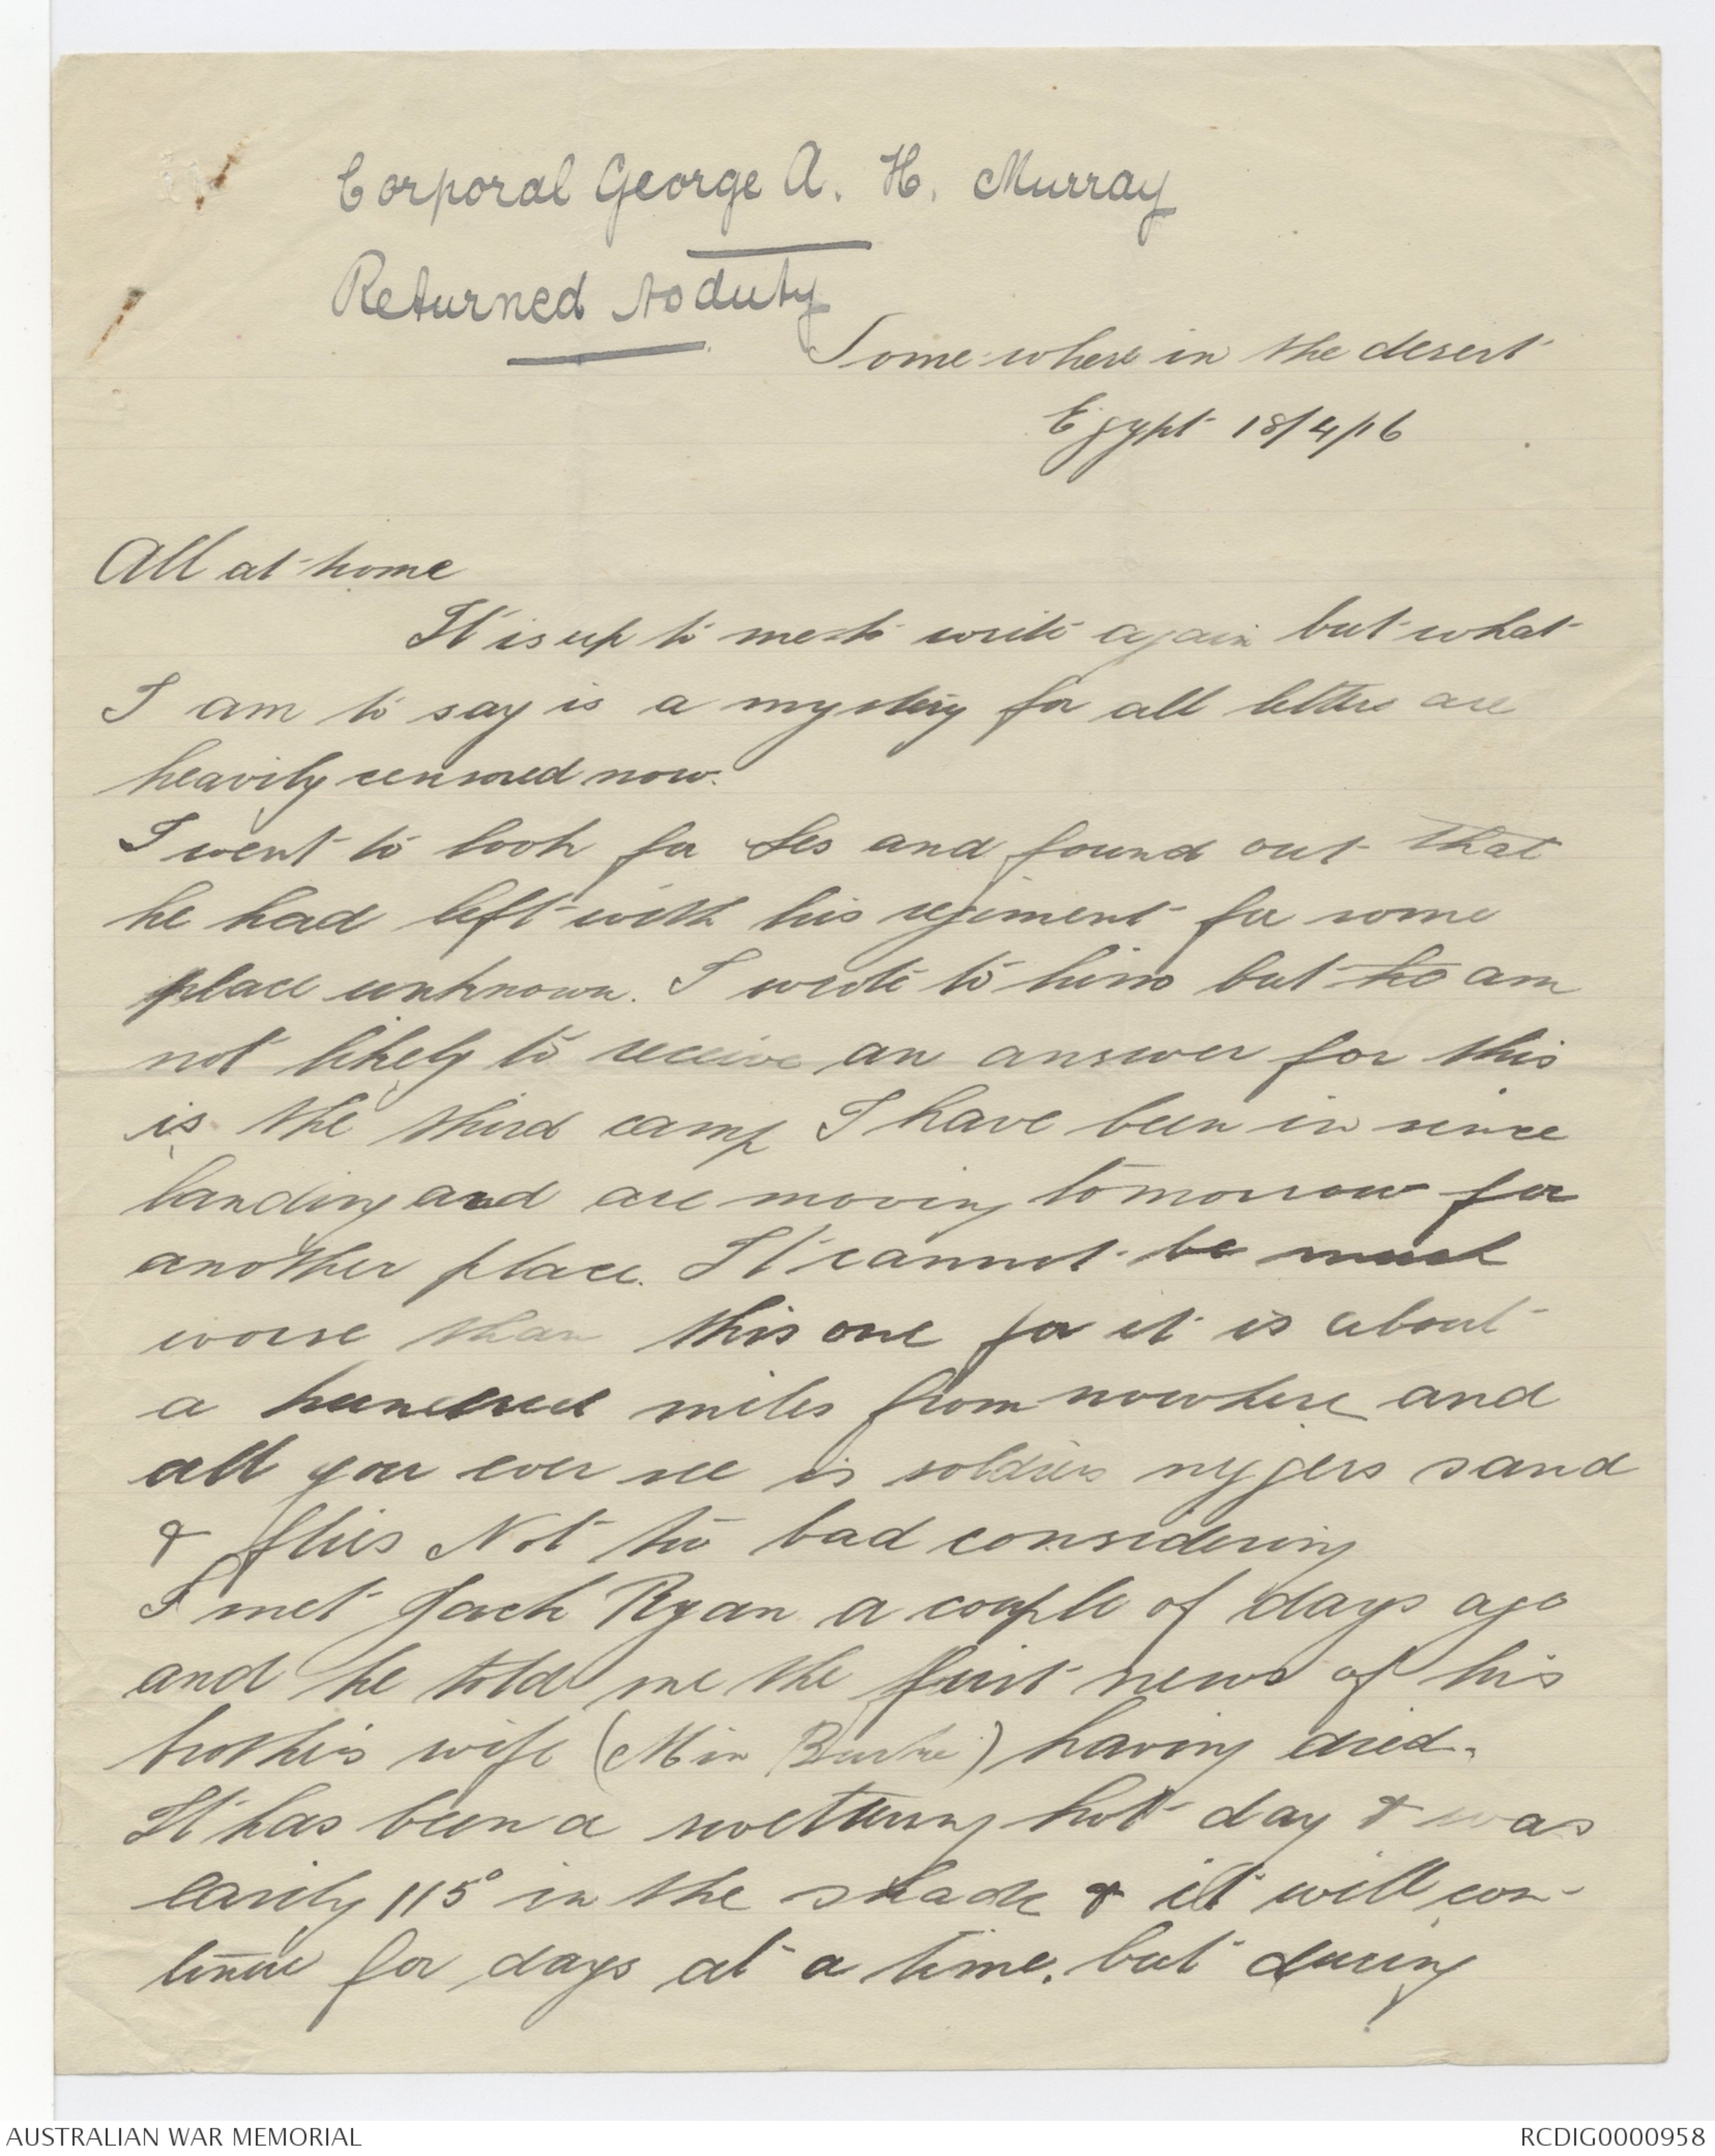 Corporal George A. H. Murray
Returned to duty
Some where in the desert
Egypt 18/4/16
All at home
It is up to me to write again but what
I am to say is a mystery for all letters are
heavily censored now.
I went to look for Les and found out that
he had left with his regiment for some
place unknown. I wrote to him but am
not likely to receive an answer for this
is the third camp I have been in since
landing and are moving tomorrow for
another place. It cannot be much
worse than this one for it is about
a hundred miles from nowhere and
all you ever see is soldiers niggers sand
& flies Not too bad considering
I met Jack Ryan a couple of days ago
and he told me the first news of his
brother's wife (Min Burke) having died.
It has been a sweltering hot day & was
easily 115° in the shade & it will con-
tinue for days at a time. but during
AUSTRALIAN WAR MEMORIAL
RCDIG0000958